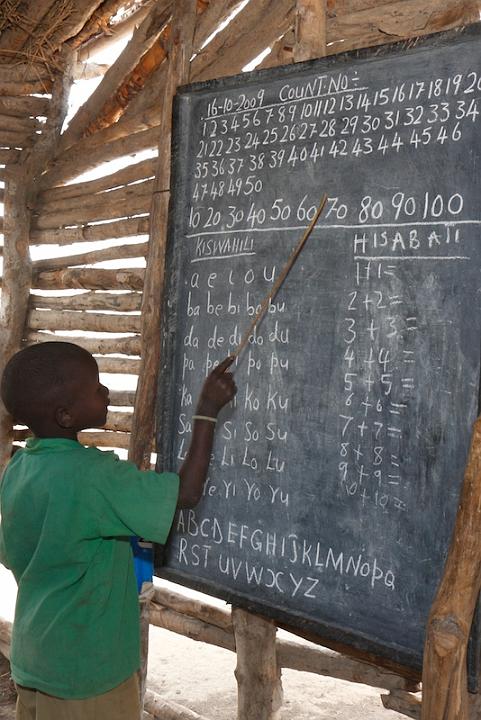 16-10-2009 COUNT.NO:-
1 2 3 4 5 6 7 8 9 10 11 12 13 14 15 16 17 18 19 20
21 22 23 24 25 26 27 28 29 30 31 32 33 34
35 36 37 38 39 40 41 42 43 44 45 46
47 48 49 50
10 20 30 40 50 60 70 80 90 100
KISWAHILI
a e i o u
ba be bi bo bu
da de di do du
pa pe po pu
Ka Ko Ku
Sa Si So Su
Li Lo Lu
Ye Yi Yo Yu
HISABATI
1+1=
2+2=
3+3=
4+4=
5+5=
6+6=
7+7=
8+8=
9+9=
10+10=
ABCDEFGHIJKLMNOPQ
RSTUVWXYZ